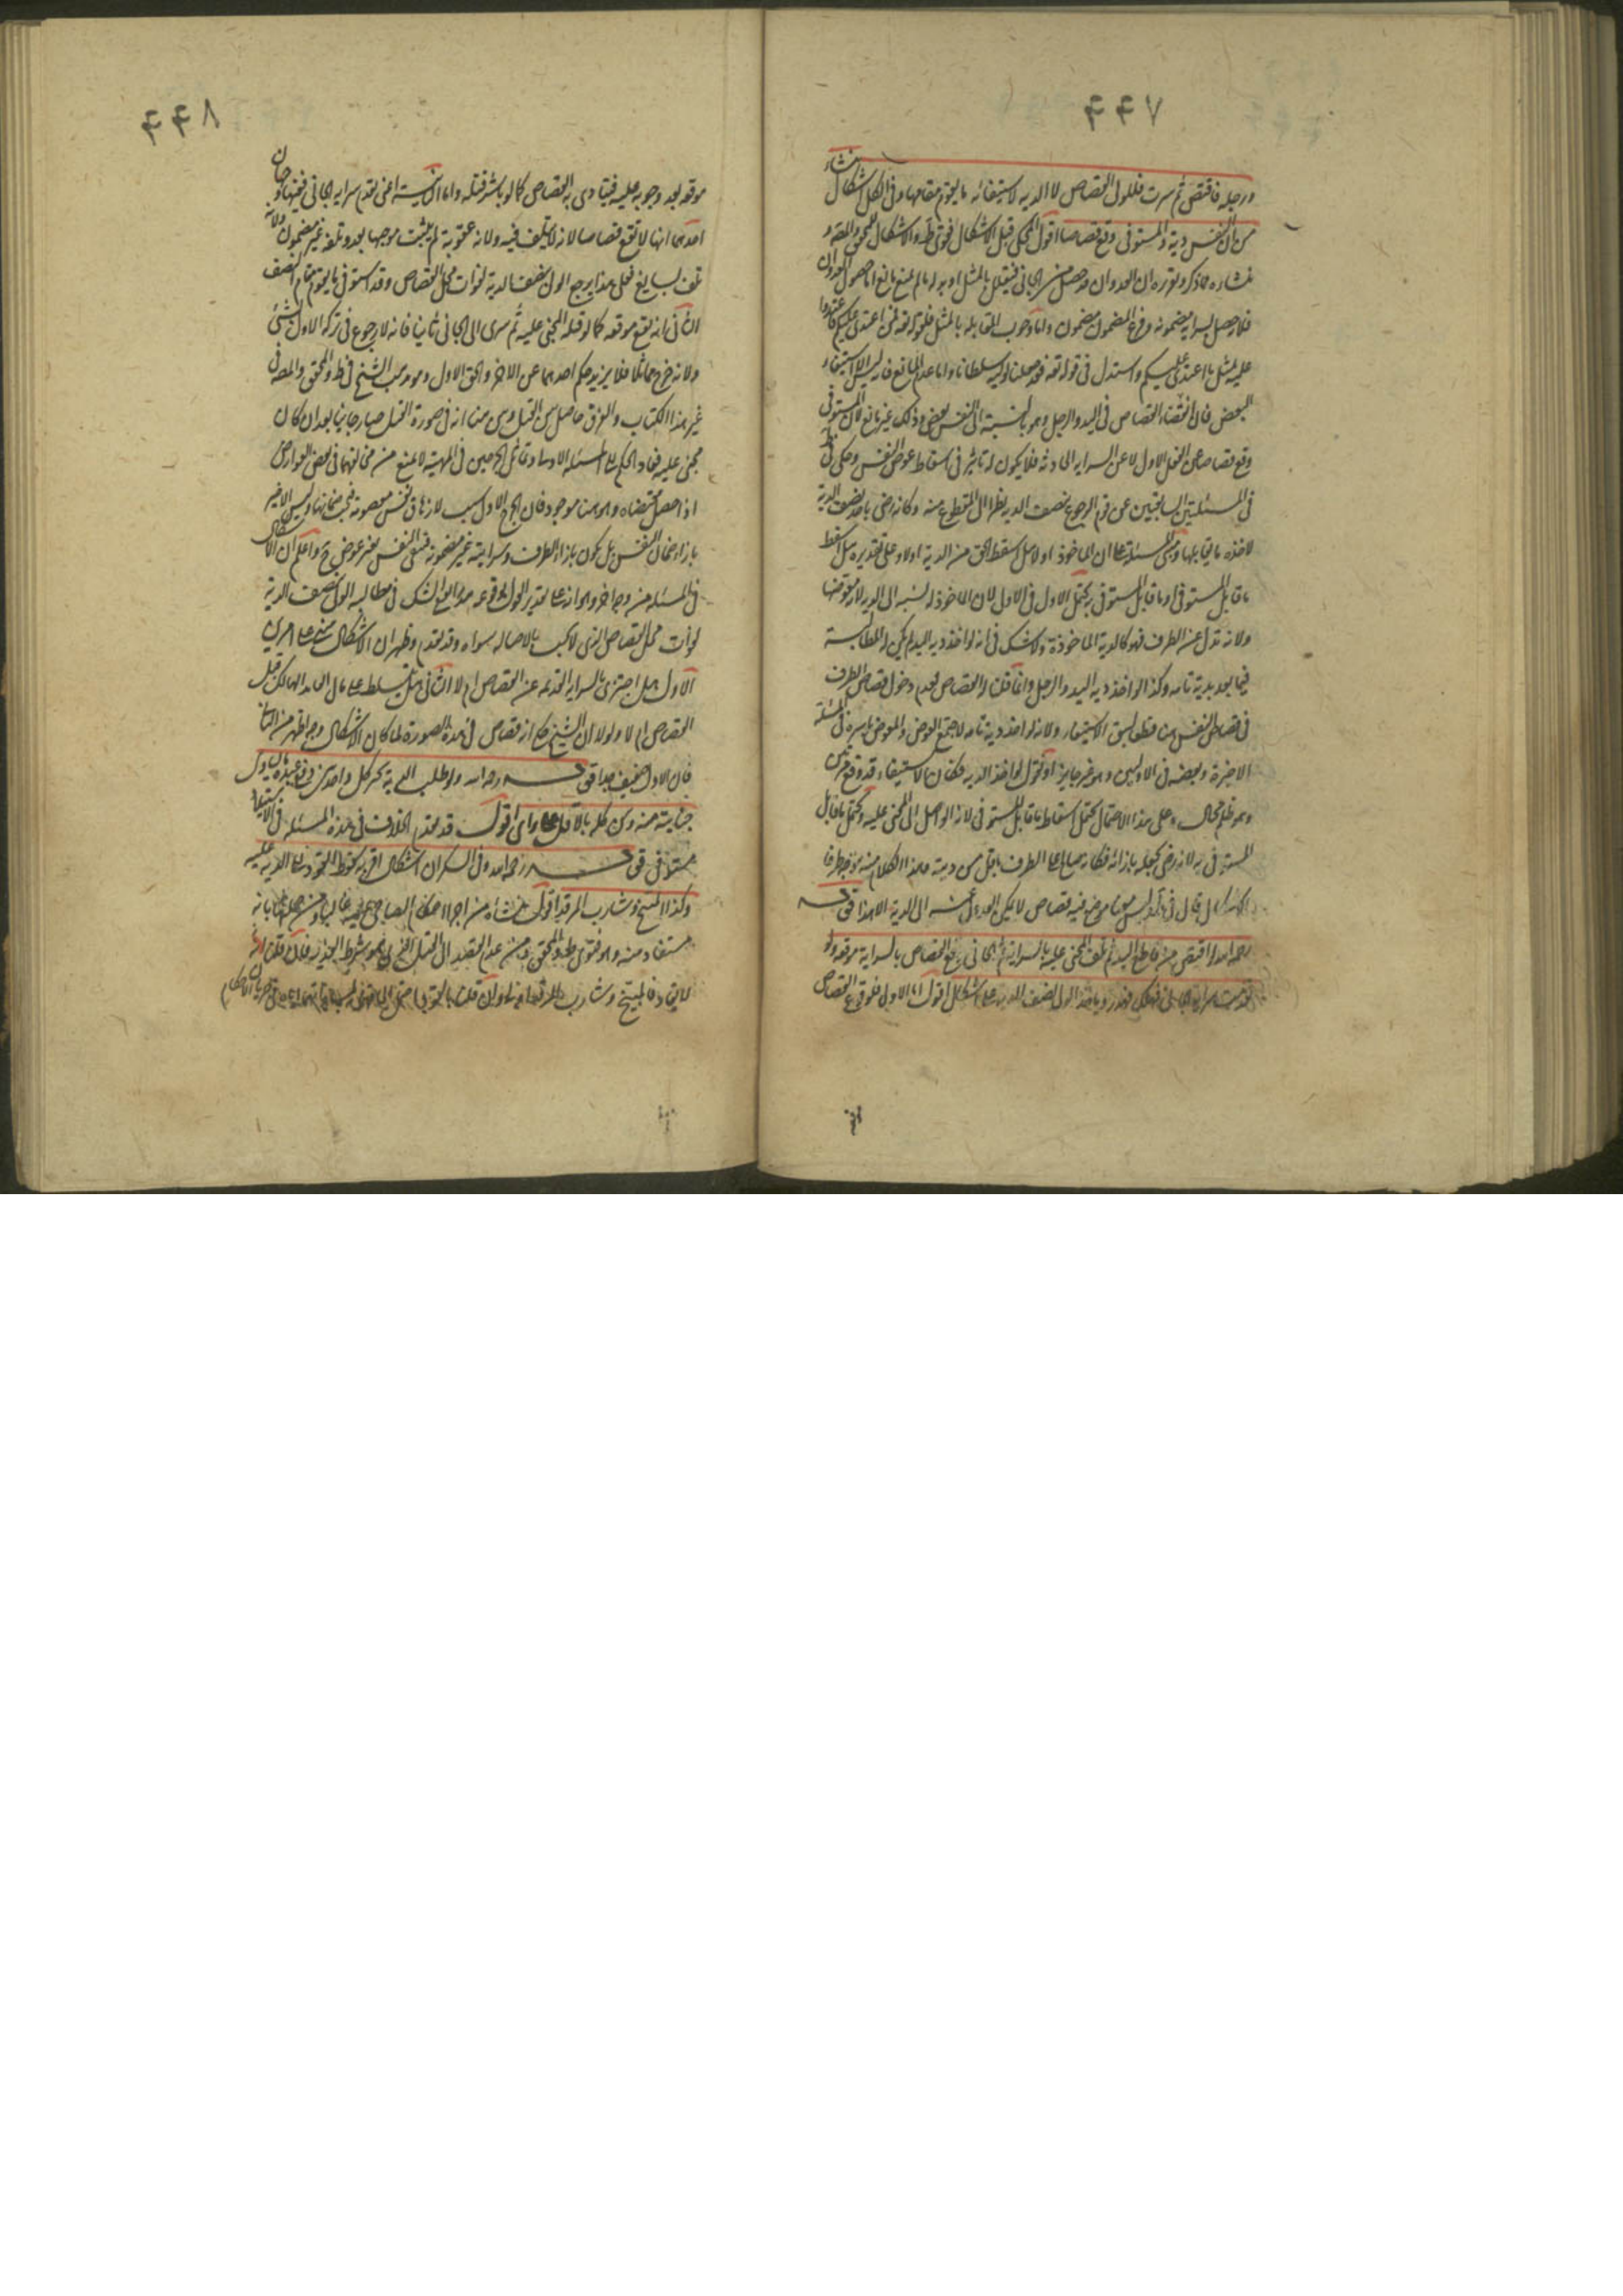 ۴۴۷
ورجله فاقتص ثم سرت فللولي القصاص لا الدية لاستيفائه ما يقوم مقامها وفي الكل اشكال ينشأ
من ان للنفس دية والمستوفى وقع قصاصا اقول المحكي قبل الاشكال فتوى ط والاشكال للمحقق والمصنف و
منشاؤه مما ذكر وتقريره ان العدوان قد حصل من الجاني فيقابل بالمثل او بدله ما لم يمنع مانع اما حصول العدوان
فلا حصل بسراية مضمونة وفرع المضمون مضمون واما وجوب المقابلة بالمثل فلقوله تعه فمن اعتدى عليكم فاعتدوا
عليه بمثل ما اعتدى عليكم واستدل في قوله تعه فقد جعلنا لوليه سلطانا واما عدم المانع فانه ليس الا استيفاء
البعض فان اقتضاء القصاص في اليد والرجل وهو بالنسبة الى النفس بعض وذلك غير مانع لان المستوفى
وقع قصاصا عن الفعل الاول لا عن السراية الحادثة فلا يكون له تاثير في اسقاط عوض النفس وحكي في ط
في المسئلتين السابقتين عن قوم الرجوع بنصف الدية نظرا الى المقطوع منه وكانه رضي باخذ نصف الدية
لاخذه ما يقابلها ومبنى المسئلة على ان الماخوذ اولا هل اسقط الحق من الدية اولا وعلى تقديره هل اسقط
ما قابل المستوفى او ما قابل المستوفى به يحتمل الاول في الاول لان الماخوذ له نسبة الى الدية لانه معوضها
ولانه بدل عن الطرف فهو كالدية الماخوذة ولا شك في انه لو اخذ دية اليد لم يكن له المطالبة
فيما بعد بدية تامة وكذا لو اخذ دية اليد والرجل وانما قلنا له القصاص لعدم دخول قصاص الطرف
في قصاص النفس هنا قطعا لسبق الاستيفاء ولانه لو اخذ دية تامة لاجتمع العوض والمعوض باسره في المسئلة
الاخيرة وبعضه في الاوليين وهو غير جايز او نقول لو اخذ الدية فكان الاستيفاء قد وقع
وهو ظلم محال وعلى هذا الاحتمال يحتمل اسقاط ما قابل المستوفى لانه الواصل الى المجني عليه ويحتمل ما قابل
المستوفى به لانه رضي بجعله بازائه فكانه صالح على الطرف باقل من ديته وهذا الكلام منه
اشكال قال في ليس هنا موضع فيه قصاص لا يمكن العدول عنه الى الدية الا هذا قوله
رحمه الله لو اقتص من قاطع اليد ثم تلف المجني عليه بالسراية ثم الجاني وقع القصاص بالسراية موقعه ولو
تقدمت سراية الجاني فهدر وياخذ الولي نصف الدية على اشكال اقول اما الاول فلوقوع القصاص
۴۴۸
موقعه بعد وجوبه عليه فيتادى به القصاص كما لو باشر قتله واما الثانية اعني تقدم سراية الجاني ففيها وجهان
احدهما انها لا تقع قصاصا لانه لا يسلف فيه ولانه عقوبة لم يثبت موجبها بعد وتلفه غير مضمون ولانه
تلف بسايغ فعلى هذا يرجع الولي بنصف الدية لفوات محل القصاص وقد استوفى ما يقوم مقام النصف
الثاني انه يقع موقعه كما لو قتله المجني عليه ثم سرى الى الجاني ثانيا فانه لا رجوع في تركة الاول بشئ
ولانه جرح مماثل فلا يزيد حكم احدهما عن الاخر والحق الاول وهو مذهب الشيخ في ط والمحقق والمصنف في
غير هذا الكتاب والفرق حاصل بين القتل وبين هنا انه في صورة القتل صار جانيا بعد ان كان
مجني عليه فعاد الحكم الى المسئلة الاولى وتماثل الجرحين في المهية لا يمنع من مخالفتهما في بعض العوارض
اذا حصل مقتضاه وهو هنا موجود فان الجرح الاول سبب لازهاق نفس معصومة فيجب ضمانها وليس الاخير
بازاء ضمان النفس بل يكون بازاء الطرف وسرايته غير مضمونة فتبقى النفس بغير عوض واعلم ان الاشكال
في المسئلة من وجه اخر وهو انه على تقدير القول بوقوعه هدرا يقع الشك في مطالبة الولي بنصف الدية
لفوات محل القصاص الذي لا يجب بالاصالة سواه وقد تقدم وظهر ان الاشكال مبني على امرين
الاول هل اجتزئ بالسراية المتقدمة عن القصاص ام لا الثاني هل يتسلط على مال العامد الهالك قبل
القصاص ام لا ولولا ان الشيخ حكم انه قصاص في هذه الصورة لما كان الاشكال وجه اظهر من الثاني
فان الاول ضعيف جدا قوله رحمه الله ولو طلب الدية
جنايته منه ومن كله بالاقل على راي اقول قد تقدم الخلاف في هذه المسئلة في الاستيفاء
مستوفى قوله رحمه الله وفي السكران اشكال اقربه سقوط القود منه الى الدية عليه
وكذا المبنج وشارب المرقد اقول منشاؤه من اجراء احكام الصاحي عليه غالبا
مستفاد منه وهو فتوى ط والمحقق ومن عدم القصد الى القتل الذي هو شرط القود فان قلت
لا يقاد فالمبنج وشارب المرقد اولى وان قلت بالقود